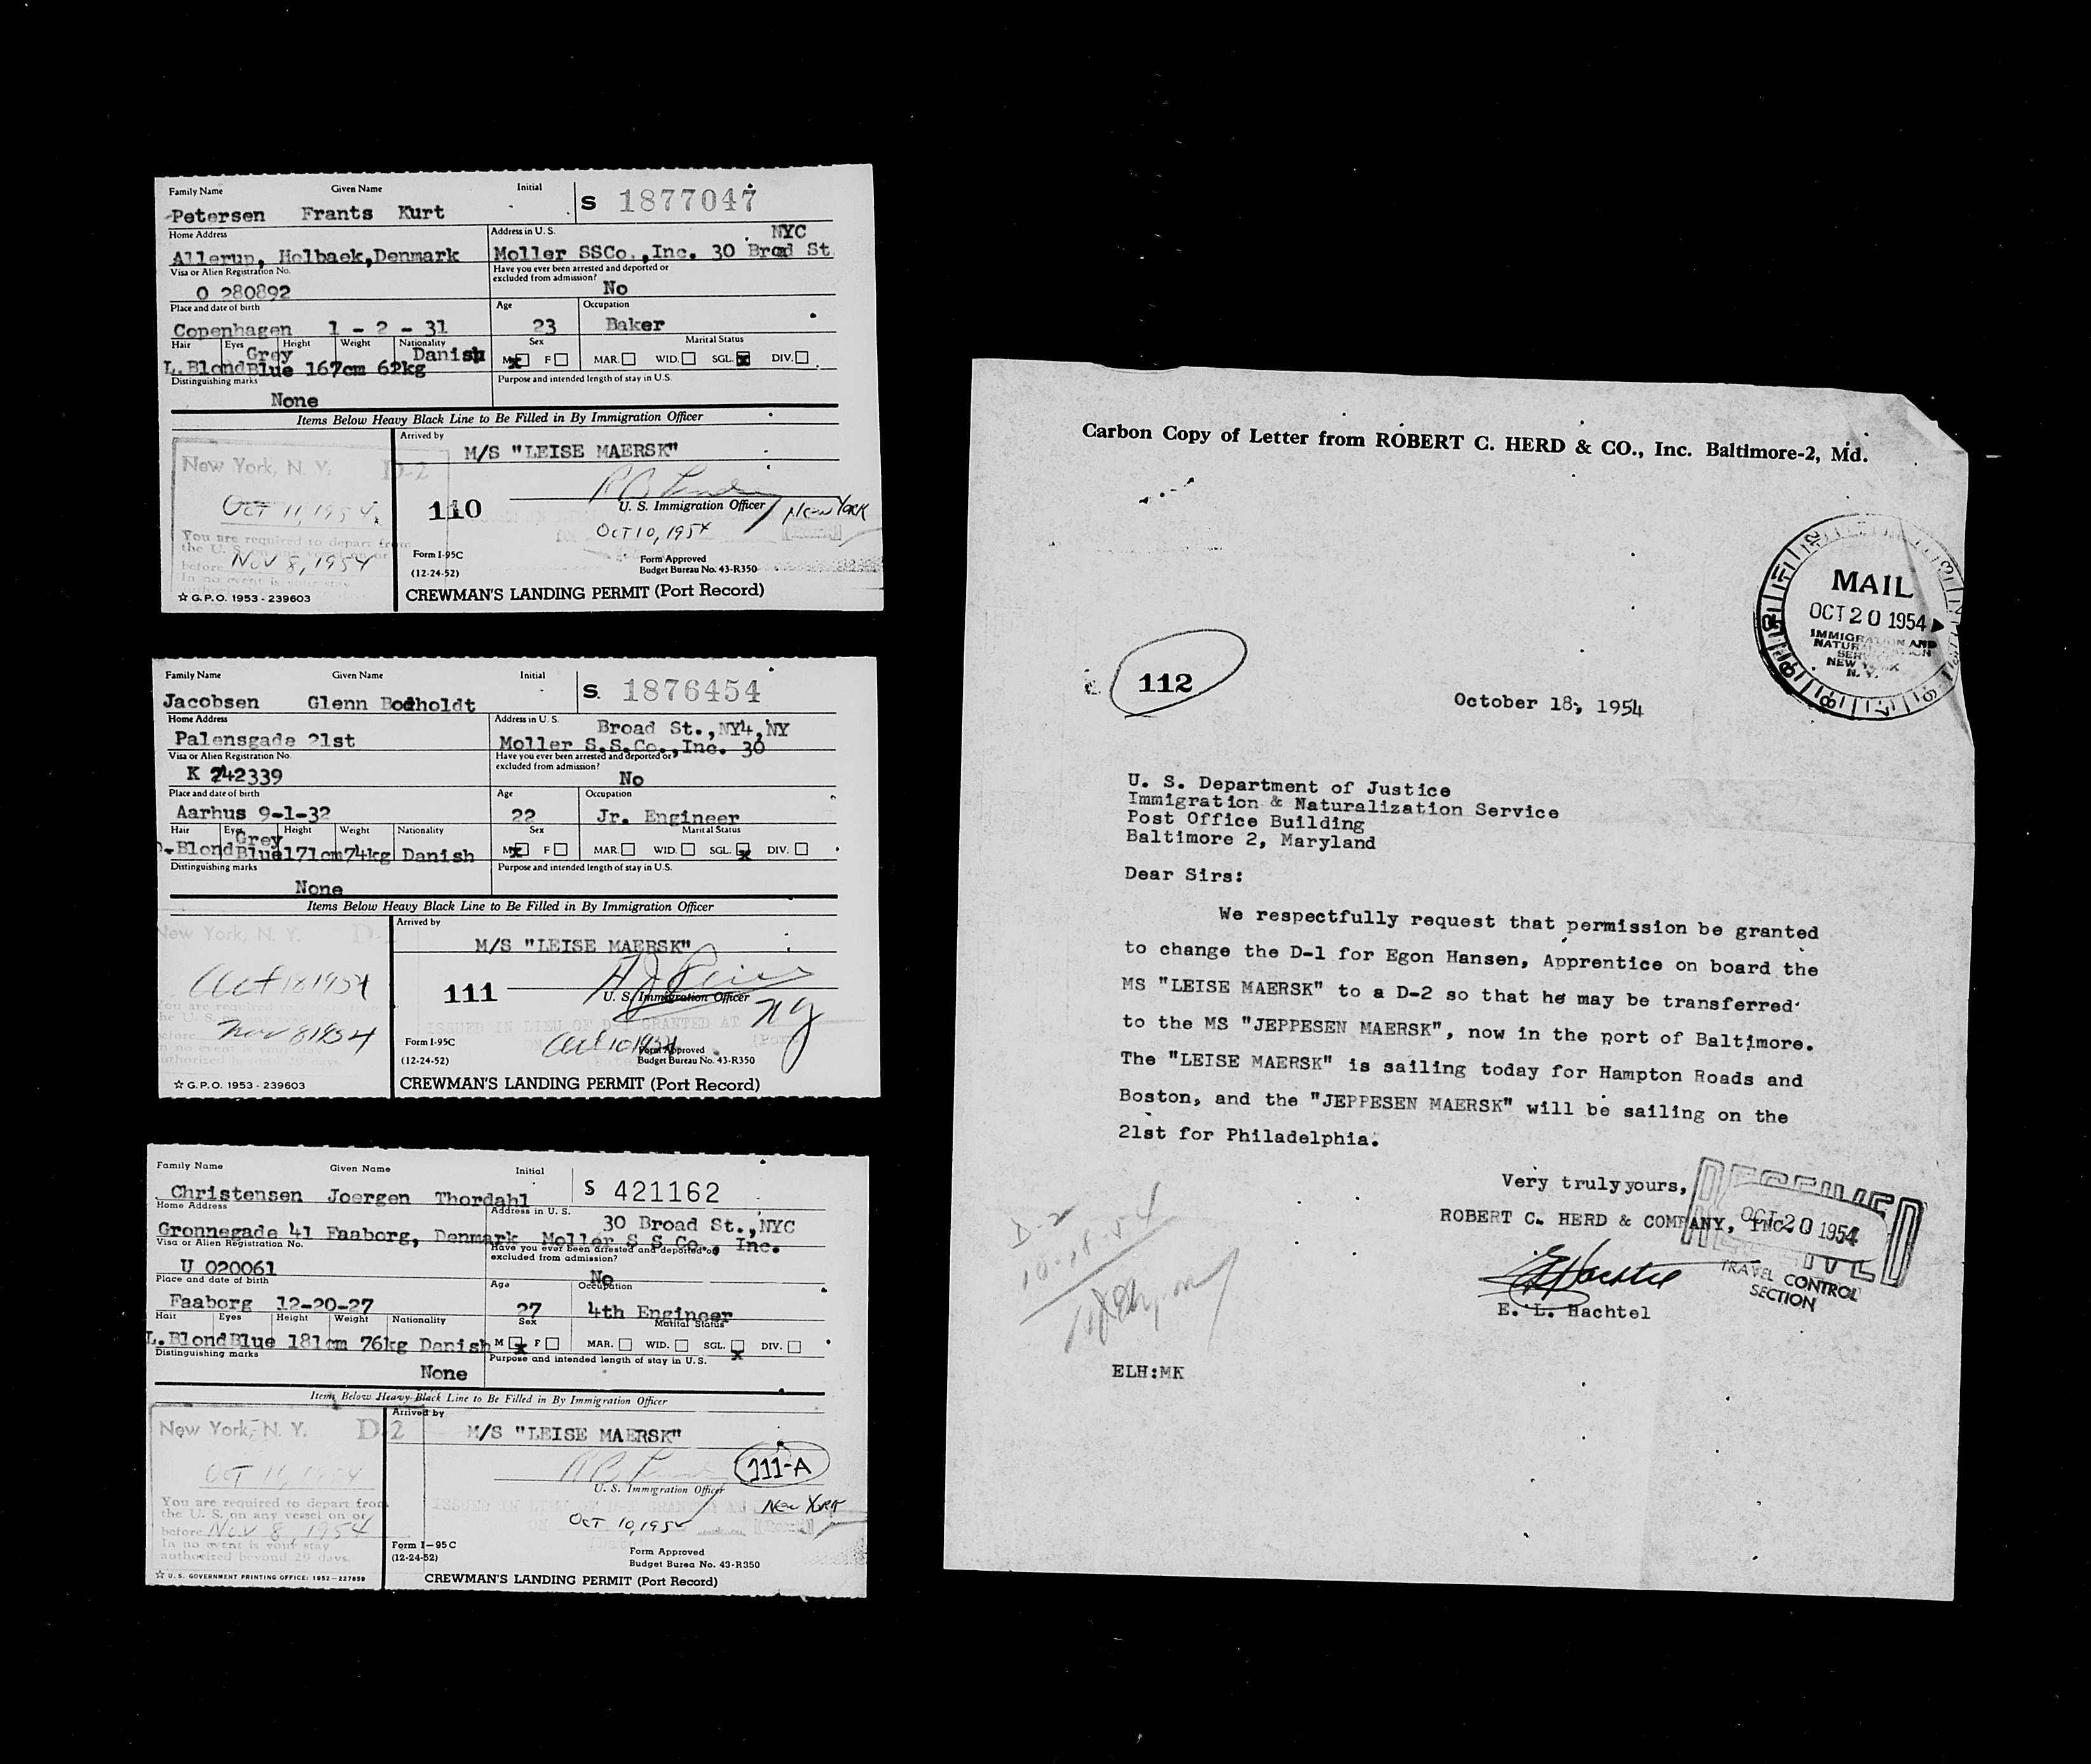 Family Name Given Name Initial S 1877047
Petersen Frants Kurt
Home Address Address in U. S. NYC
Allerup, Holbaek,Denmark Moller SSCo.,Inc. 30 Broad St
Visa or Alien Registration No. Have you ever been arrested and deported or
excluded from admission?
O 280892 No
Place and date of birth Age Occupation
Copenhagen 1 - 2 - 31 23 Baker
Hair Eyes Height Weight Nationality Sex Marital Status
Grey Danish M F MAR. WID. SGL. DIV.
L.BlondBlue 167cm 62kg
Distinguishing marks Purpose and intended length of stay in U.S.
None
Items Below Heavy Black Line to Be Filled in By Immigration Officer
Arrived by
M/S "LEISE MAERSK"
New York, N. Y. D-2
Oct 11, 1954
110 U. S. Immigration Officer New York
Oct 10, 1954
You are required to depart from
the U. S. on any vessel on or
before Nov 8, 1954
In no event is your stay
Form I-95C Form Approved
(12-24-52) Budget Bureau No. 43-R350
☆ G.P.O. 1953 - 239603 CREWMAN'S LANDING PERMIT (Port Record)
Family Name Given Name Initial S. 1876454
Jacobsen Glenn Bodholdt
Home Address Address in U. S. Broad St.,NY4,NY
Palensgade 21st Moller S.S.Co.,Inc. 30
Visa or Alien Registration No. Have you ever been arrested and deported or
excluded from admission?
K 242339 No
Place and date of birth Age Occupation
Aarhus 9-1-32 22 Jr. Engineer
Hair Eyes Height Weight Nationality Sex Marital Status
Grey M F MAR. WID. SGL. DIV.
D.BlondBlue171cm74kg Danish
Distinguishing marks Purpose and intended length of stay in U.S.
None
Items Below Heavy Black Line to Be Filled in By Immigration Officer
Arrived by
New York, N. Y. D-
M/S "LEISE MAERSK"
Oct 18 1954
111 U. S. Immigration Officer
NY
ISSUED IN LIEU OF D-1 GRANTED AT
You are required
the U. S.
before Nov 8 1954
Oct 10 1954
Form I-95C Form Approved
(12-24-52) Budget Bureau No. 43-R350
☆ G.P.O. 1953 - 239603 CREWMAN'S LANDING PERMIT (Port Record)
Family Name Given Name Initial S 421162
Christensen Joergen Thordahl
Home Address Address in U. S. 30 Broad St.,NYC
Gronnegade 41 Faaborg, Denmark Moller S S Co., Inc.
Visa or Alien Registration No. Have you ever been arrested and deported or
excluded from admission?
U 020061 No
Place and date of birth Age Occupation
Faaborg 12-20-27 27 4th Engineer
Hair Eyes Height Weight Nationality Sex Marital Status
L.BlondBlue 181cm 76kg Danish M F MAR. WID. SGL. DIV.
Distinguishing marks Purpose and intended length of stay in U.S.
None
Items Below Heavy Black Line to Be Filled in By Immigration Officer
Arrived by
New York, N. Y. D-2 M/S "LEISE MAERSK"
111-A
Oct 11, 1954
U. S. Immigration Officer
ISSUED IN LIEU OF D-1 GRANTED AT New York
You are required to depart from
the U. S. on any vessel on or
before Nov 8, 1954
In no event is your stay
authorized beyond 29 days.
Oct 10, 1954
Form I-95C Form Approved
(12-24-52) Budget Burea No. 43-R350
☆ U. S. GOVERNMENT PRINTING OFFICE: 1952-227850 CREWMAN'S LANDING PERMIT (Port Record)
Carbon Copy of Letter from ROBERT C. HERD & CO., Inc. Baltimore-2, Md.
MAIL
OCT 20 1954
IMMIGRATION AND
NATURALIZATION
SERVICE
NEW YORK
N. Y.
112
October 18, 1954
U. S. Department of Justice
Immigration & Naturalization Service
Post Office Building
Baltimore 2, Maryland
Dear Sirs:
We respectfully request that permission be granted
to change the D-1 for Egon Hansen, Apprentice on board the
MS "LEISE MAERSK" to a D-2 so that he may be transferred
to the MS "JEPPESEN MAERSK", now in the port of Baltimore.
The "LEISE MAERSK" is sailing today for Hampton Roads and
Boston, and the "JEPPESEN MAERSK" will be sailing on the
21st for Philadelphia.
Very truly yours,
ROBERT C. HERD & COMPANY, INC.
RECEIVED
OCT 20 1954
TRAVEL CONTROL
SECTION
D-2
10-18-54
E L Hachtel
E. L. Hachtel
ELH:MK